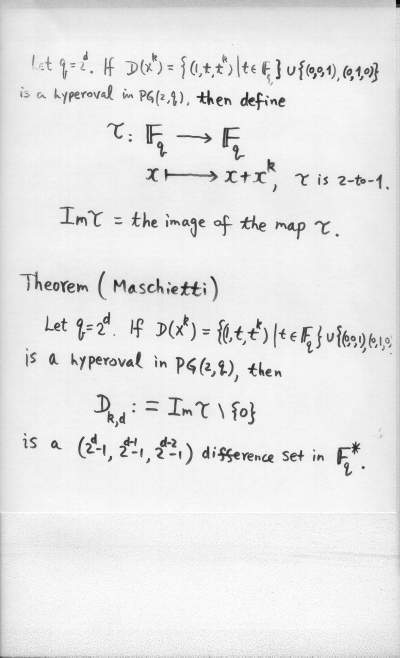 Let q=2^d. If D(x^k) = {(1,t,t^k) | t ∈ 𝔽_q} ∪ {(0,0,1), (0,1,0)}
is a hyperoval in PG(2,q), then define
τ: 𝔽_q ⟶ 𝔽_q
x ⟼ x + x^k, τ is 2-to-1.
Im τ = the image of the map τ.
Theorem (Maschietti)
Let q=2^d. If D(x^k) = {(1,t,t^k) | t ∈ 𝔽_q} ∪ {(0,0,1),(0,1,0)
is a hyperoval in PG(2,q), then
D_{k,d} := Im τ \ {0}
is a (2^d-1, 2^{d-1}-1, 2^{d-2}-1) difference set in 𝔽_q^*.